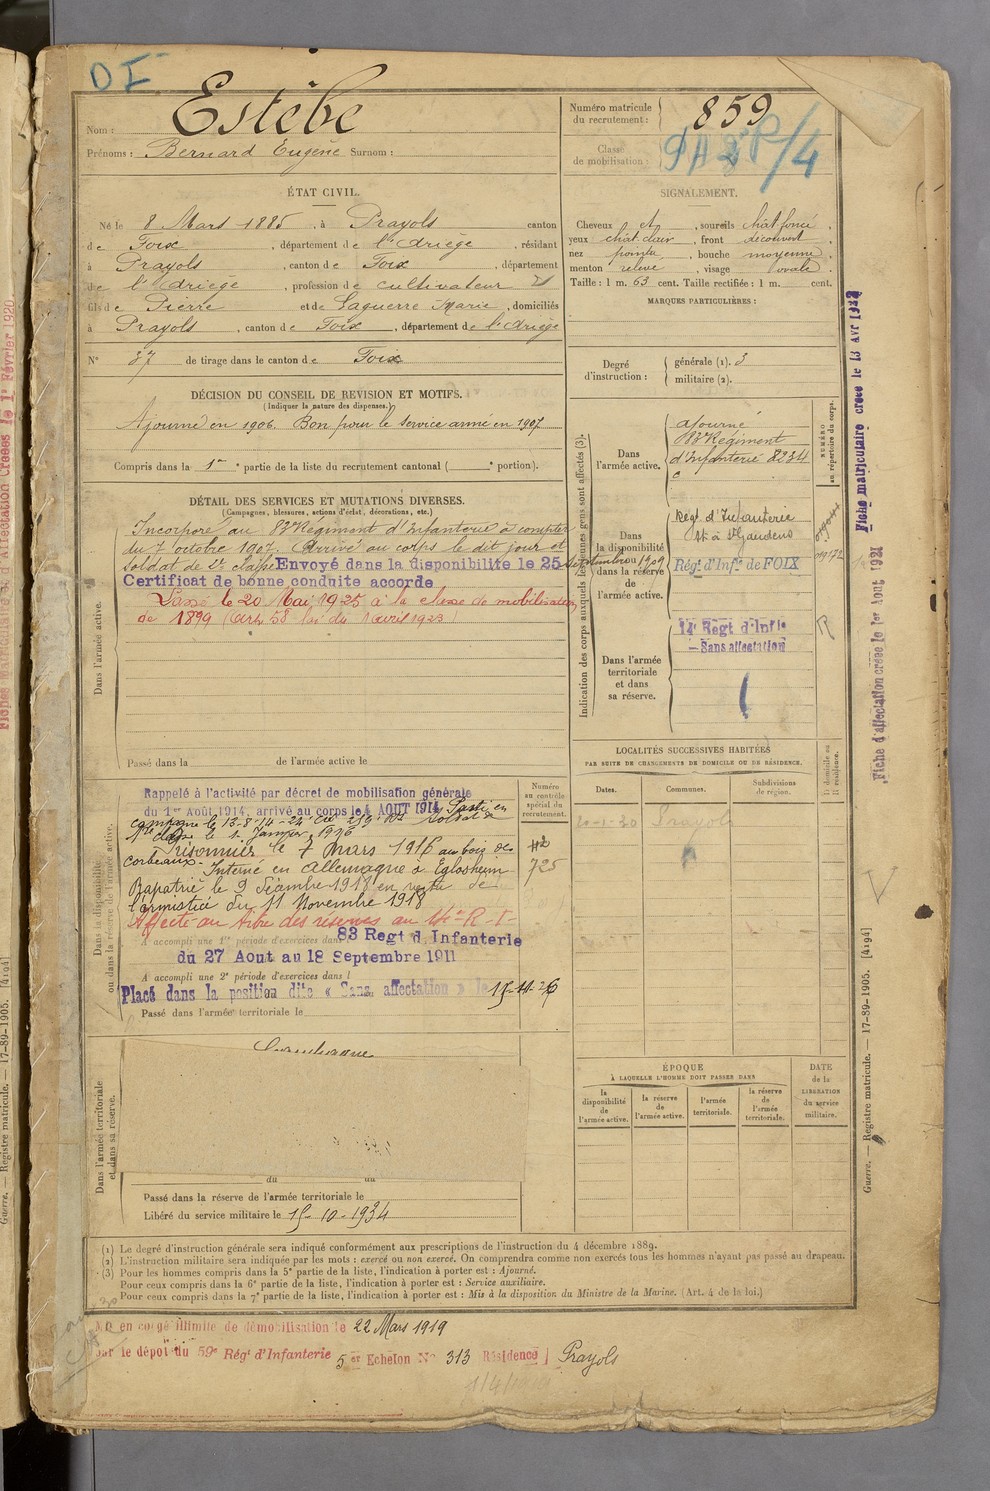 DI
Nom : Estèbe
Prénoms : Bernard Eugène Surnom :
Numéro matricule du recrutement : 859
Classe de mobilisation :
ÉTAT CIVIL.
Né le 8 Mars 1885, à Prayols canton
de Foix, département de l'Ariège, résidant
à Prayols, canton de Foix, département
de l'Ariège, profession de cultivateur
fils de Pierre et de Laguerre Marie, domiciliés
à Prayols, canton de Foix, département de l'Ariège
N° 37 de tirage dans le canton de Foix
SIGNALEMENT.
Cheveux et, sourcils chât foncé,
yeux chât. clair, front découvert,
nez pointu, bouche moyenne,
menton relevé, visage ovale.
Taille : 1 m. 63 cent. Taille rectifiée : 1 m. cent.
MARQUES PARTICULIÈRES :
Degré d'instruction : générale (1). 3
militaire (2).
DÉCISION DU CONSEIL DE REVISION ET MOTIFS.
(Indiquer la nature des dispenses.)
Ajourné en 1906. Bon pour le service armé en 1907
Compris dans la 1re partie de la liste du recrutement cantonal ( ° portion).
DÉTAIL DES SERVICES ET MUTATIONS DIVERSES.
(Campagnes, blessures, actions d'éclat, décorations, etc.)
Dans l'armée active.
Incorporé au 83e Régiment d'Infanterie à compter
du 7 octobre 1907. Arrivé au corps le dit jour et
soldat de 2e classe Envoyé dans la disponibilité le 25 septembre 1909
Certificat de bonne conduite accordé
Passé le 20 Mai 1925 à la classe de mobilisation
de 1899 (art. 58 loi du 1 avril 1923)
Passé dans la de l'armée active le
Indication des corps auxquels les jeunes gens sont affectés (3).
NUMÉRO au répertoire du corps.
Dans l'armée active.
ajourné
83e Régiment
d'Infanterie 8234
c
Dans la disponibilité ou dans la réserve de l'armée active.
Régt d'Infanterie
St Gaudens
Régt d'Infie de FOIX
Dans l'armée territoriale et dans sa réserve.
14e Regt d'Infie
— Sans affectation
Fiche matriculaire créée le 13 Avr 1932
Fiche d'affectation créée le 1er Aout 1921
LOCALITÉS SUCCESSIVES HABITÉES
PAR SUITE DE CHANGEMENTS DE DOMICILE OU DE RÉSIDENCE.
Dates. Communes. Subdivisions de région. D domicile ou R résidence.
20-1-20 Prayols
Dans la disponibilité ou dans la réserve de l'armée active.
Numéro au contrôle spécial du recrutement.
Rappelé à l'activité par décret de mobilisation générale
du 1er Août 1914, arrivé au corps le 4 AOUT 1914. Parti en
campagne le 13-8-14
le 1 Janvier 1916
Prisonnier le 7 mars 1916 au bois des
Corbeaux. Interné en Allemagne à Eglosheim
Rapatrié le 9 décembre 1918 en vertu de
l'armistice du 11 Novembre 1918
725
Affecté au titre des réserves au 14e R. I.
A accompli une 1re période d'exercices dans l 83 Regt d Infanterie
du 27 Aout au 18 Septembre 1911
A accompli une 2e période d'exercices dans l
Placé dans la position dite « Sans affectation » le 15-11-26
Passé dans l'armée territoriale le
ÉPOQUE
À LAQUELLE L'HOMME DOIT PASSER DANS
la disponibilité de l'armée active. la réserve de l'armée active. l'armée territoriale. la réserve de l'armée territoriale.
DATE de la LIBÉRATION du service militaire.
Dans l'armée territoriale et dans sa réserve.
du au
Passé dans la réserve de l'armée territoriale le
Libéré du service militaire le 15-10-1934
(1) Le degré d'instruction générale sera indiqué conformément aux prescriptions de l'instruction du 4 décembre 1889.
(2) L'instruction militaire sera indiquée par les mots : exercé ou non exercé. On comprendra comme non exercés tous les hommes n'ayant pas passé au drapeau.
(3) Pour les hommes compris dans la 5e partie de la liste, l'indication à porter est : Ajourné.
Pour ceux compris dans la 6e partie de la liste, l'indication à porter est : Service auxiliaire.
Pour ceux compris dans la 7e partie de la liste, l'indication à porter est : Mis à la disposition du Ministre de la Marine. (Art. 4 de la loi.)
en congé illimité de démobilisation le 22 Mars 1919
par le dépôt du 59e Régt d'Infanterie 5 er Echelon N° 313 Résidence Prayols
Guerre. — Registre matricule. — 17-89-1905. [4194]
Guerre. — Registre matricule. — 17-89-1905. [4194]